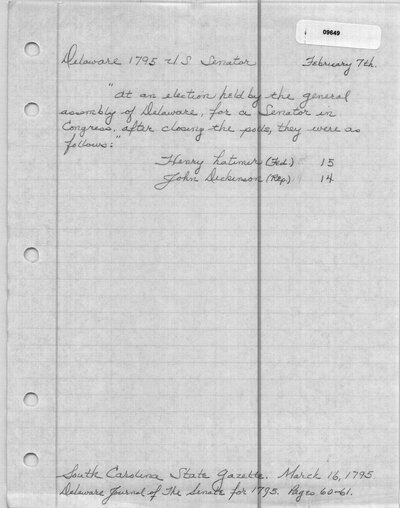 09649
Delaware 1795 U.S. Senator February 7th.
"At an election held by the general
assembly of Delaware, for a Senator in
Congress, after closing the polls, they were as
follows:"
Henry Latimer (Fed.) 15
John Dickinson (Rep.) 14
South Carolina State Gazette. March 16, 1795.
Delaware Journal of The Senate for 1795. Pages 60-61.